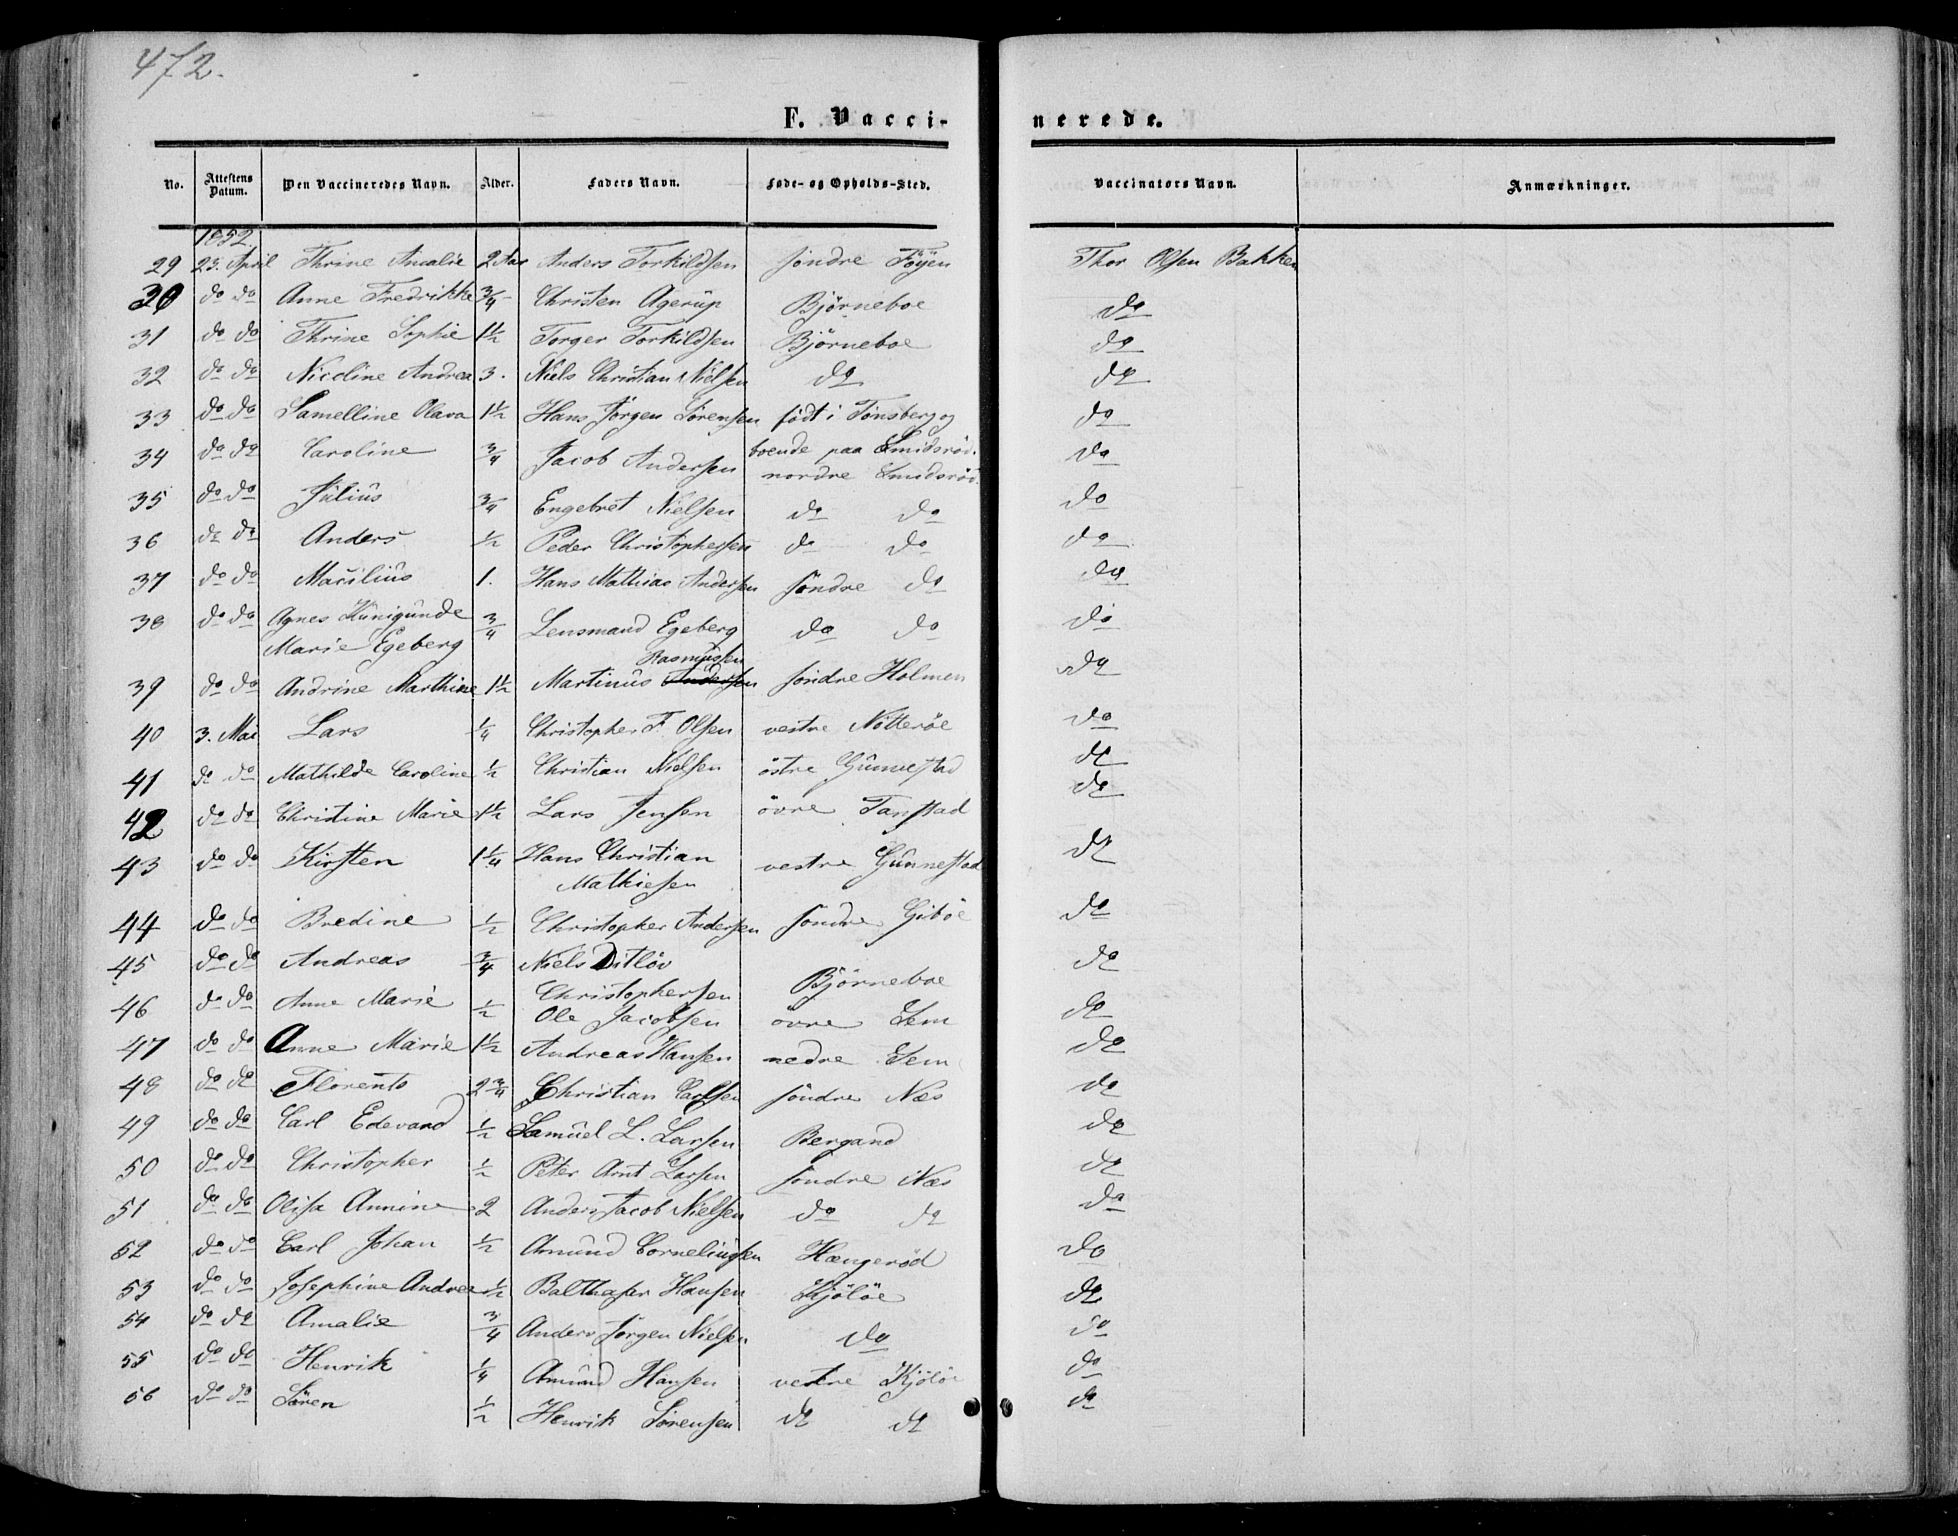 472.
F. Vacci-
nerede.
No. Attestens Datum. Den Vaccineredes Navn. Alder. Faders Navn. Føde- og Opholds-Sted. Vaccinators Navn. Anmærkninger.
1852.
29 23. April Thrine Amalie 2 Aar Anders Torkildsen søndre Föyen Thor Olsen Bakken
30 do do Anne Fredrikke 3/4 Christen Agerup Bjørneboe do
31 do do Thrine Sophie 1 1/2 Torger Torkildsen Bjørneboe do
32 do do Nicoline Andrea 3. Niels Christian Nielsen do do
33 do do Samelline Olava 1 1/2 Hans Jørgen Sørensen født i Tønsberg og do
boende paa Smidsrød.
34 do do Caroline 3/4 Jacob Andersen nordre Smidsrød do
35 do do Julius 3/4 Engebret Nielsen do do do
36 do do Anders 1/2 Peder Christophersen do do do
37 do do Macilius 1. Hans Mathias Andersen søndre do do
38 do do Agnes Kunigunde 3/4 Lensmand Egeberg do do do
Marie Egeberg
Rasmussen
39 do do Andrine Marthine 1 1/2 Martinus Andersen søndre Holmen do
40 3. Mai Lars 1/4 Christopher F. Olsen vestre Nøtterøe do
41 do do Mathilde Caroline 1/2 Christian Nielsen östre Gunnestad do
42 do do Christine Marie 1 1/2 Lars Jensen övre Tanstad do
43 do do Kirsten 1 1/4 Hans Christian vestre Gunnestad do
Mathiesen
44 do do Bredine 1/2 Christopher Andersen søndre Gipöe do
45 do do Andreas 3/4 Niels Ditløv do
Christophersen Bjørneboe
46 do do Anne Marie 1/2 Ole Jacobsen övre Sem do
47 do do Anne Marie 1 1/2 Andreas Hansen nedre Sem do
48 do do Florents 2 3/4 Christian Carlsen søndre Næs do
49 do do Carl Edevard 1/2 Samuel L. Larsen Bergand do
50 do do Christopher 1/2 Peter Arnt Larsen søndre Næs do
51 do do Olisa Annine 2 Anders Jacob Nielsen do do do
52 do do Carl Johan 1/2 Amund Corneliussen Hængerød do
53 do do Josephine Andrea 1/2 Balthaser Hansen Kjøløe do
54 do do Amalie 3/4 Anders Jørgen Nielsen do do
55 do do Henrik 1/4 Amund Hansen vestre Kjøløe do
56 do do Sören 1/2 Henrik Sørensen do do do